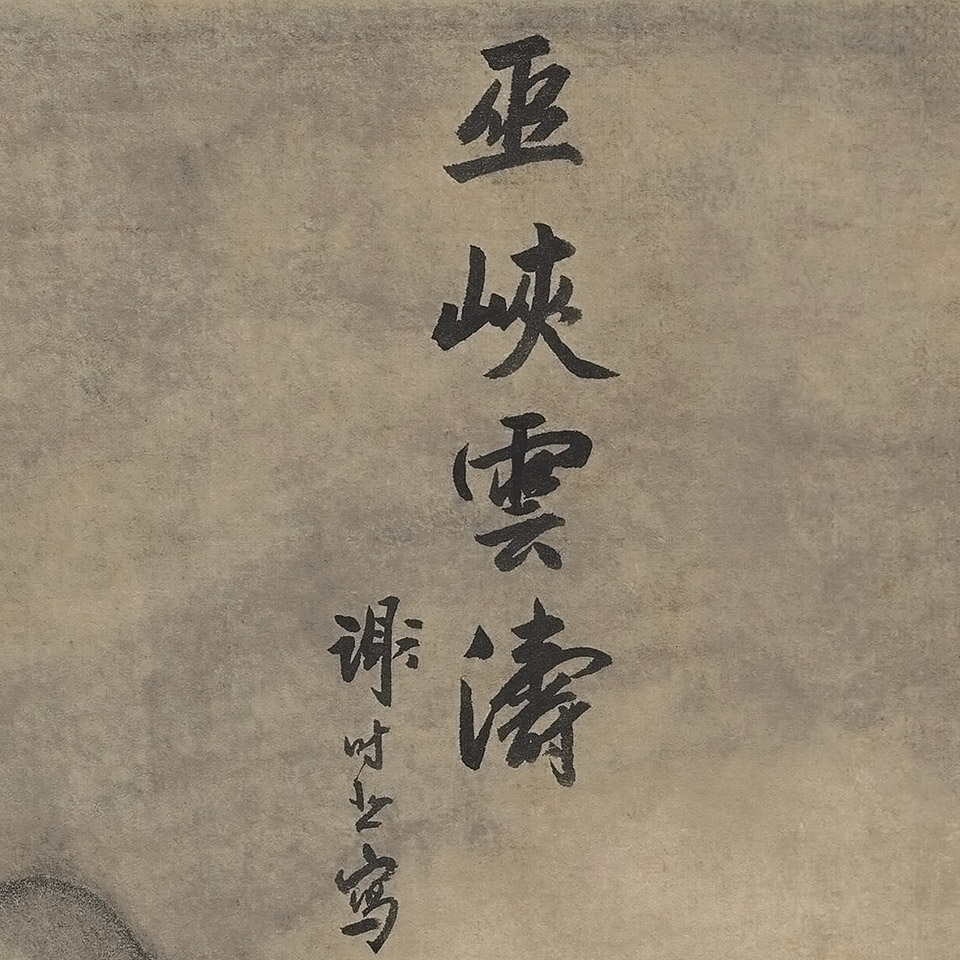 巫峽雲濤
謝时臣寫